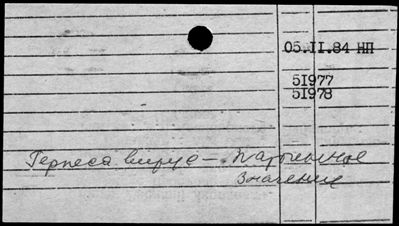 05.II.84 НП
51977
51978
Герпеса вирус — патогенное
значение